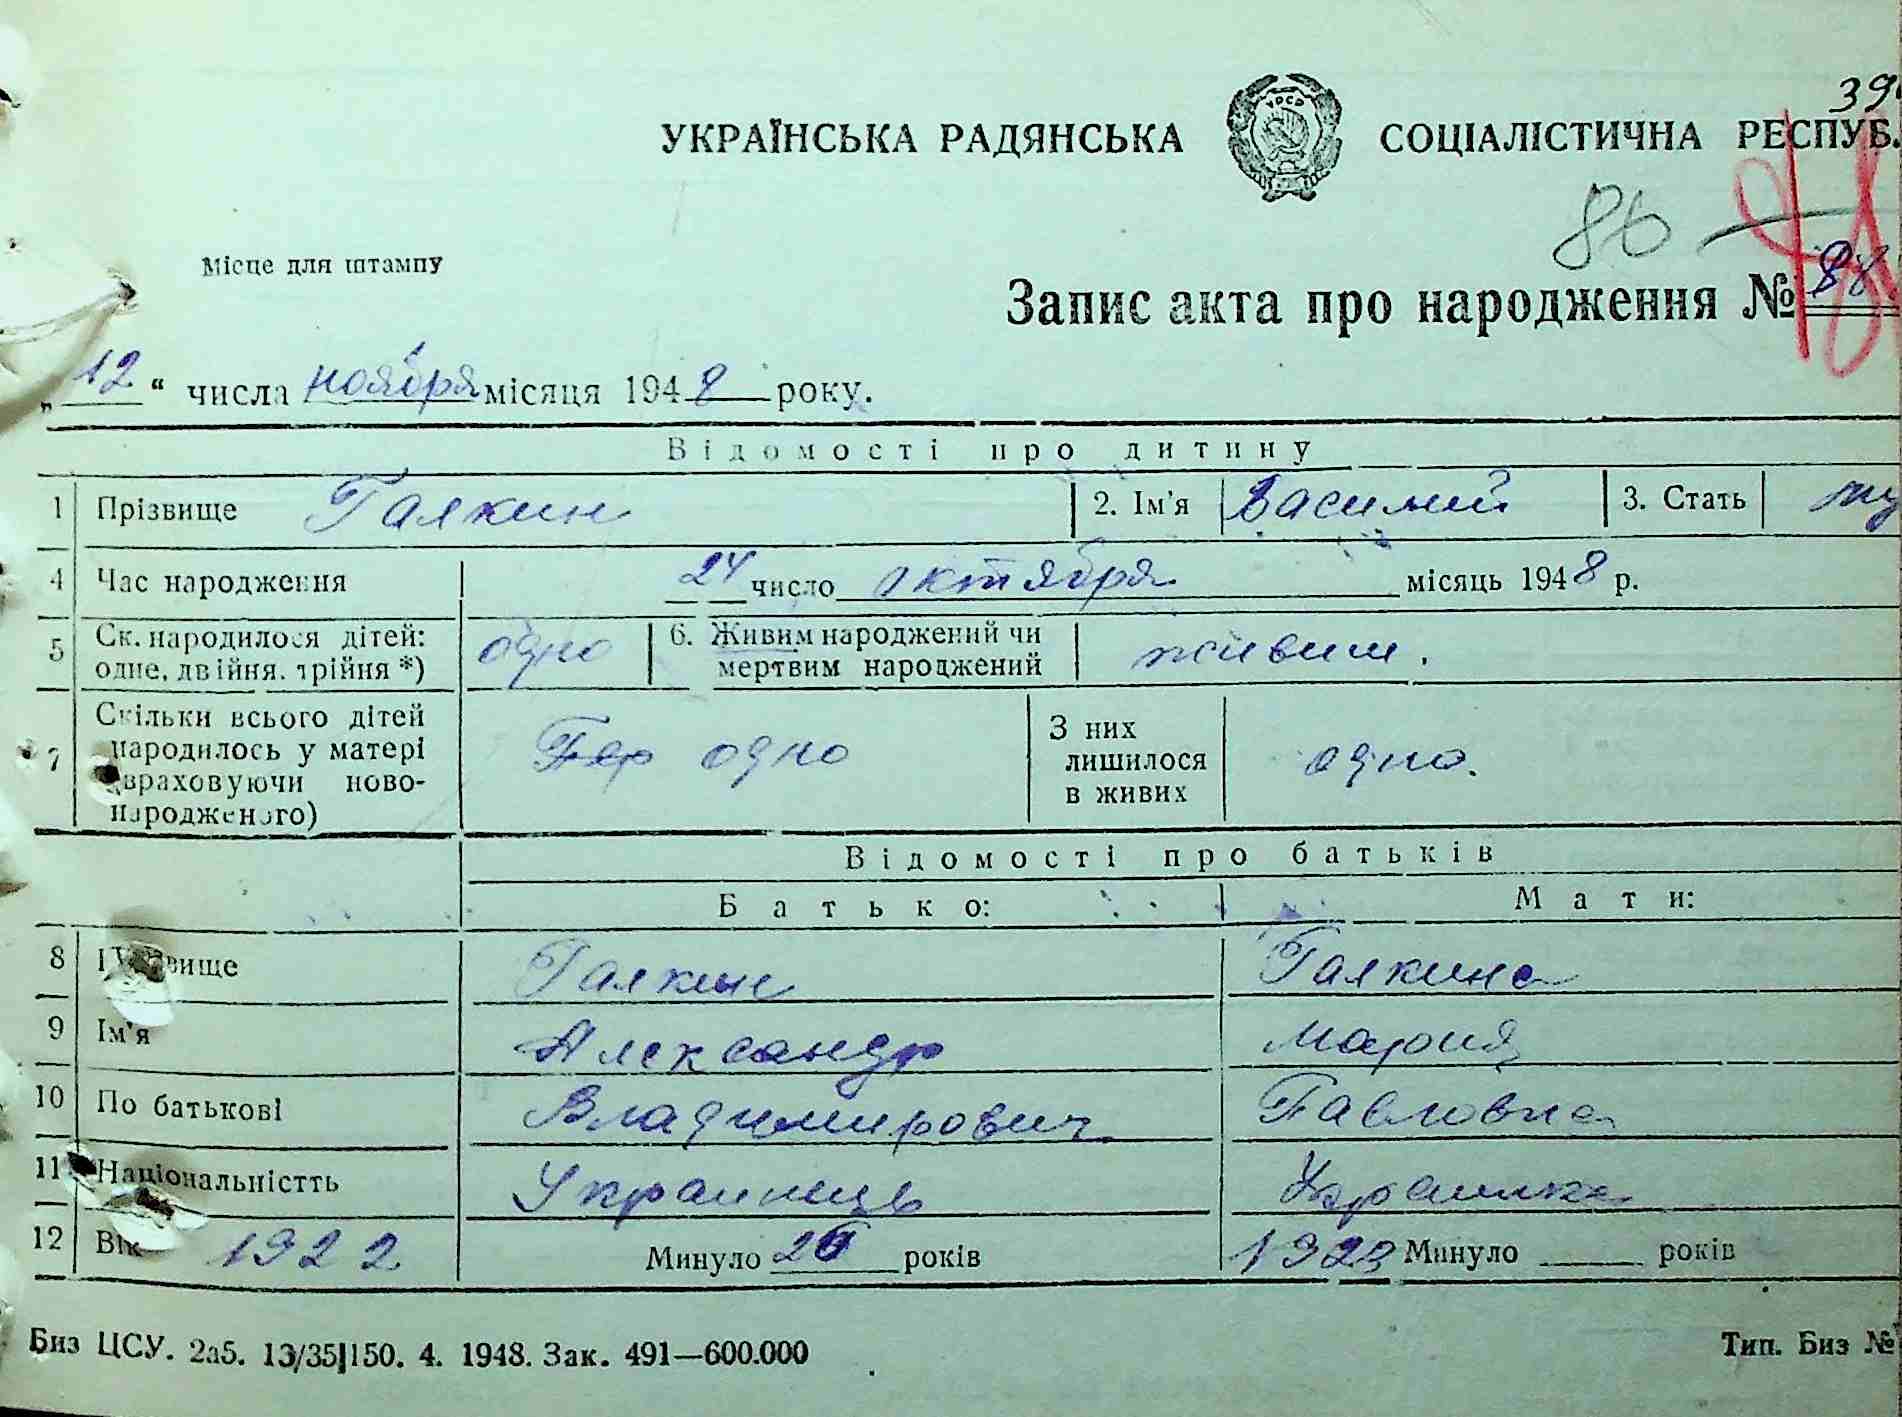 39
УКРАЇНСЬКА РАДЯНСЬКА УРСР СОЦІАЛІСТИЧНА РЕСПУБ.
86
Місце для штампу
48
Запис акта про народження № 88
„12“ числа ноября місяця 1948 року.
Відомості про дитину
1 Прізвище Галкин 2. Ім'я Василий 3. Стать му
4 Час народження 24 число октября місяць 1948 р.
5 Ск. народилося дітей: одно 6. Живим народжений чи живим.
одне, двійня, трійня *) мертвим народжений
7 Скільки всього дітей народилось у матері (враховуючи ново-народженого) одно З них лишилося в живих одно.
Відомості про батьків
Батько: Мати:
8 Прізвище Галкин Галкина
9 Ім'я Александр Мария
10 По батькові Владимирович Павловна
11 Національністть Украинець Украинка
12 Вік 1922 Минуло 26 років 1923 Минуло років
Биз ЦСУ. 2а5. 13/35 150. 4. 1948. Зак. 491—600.000 Тип. Биз №